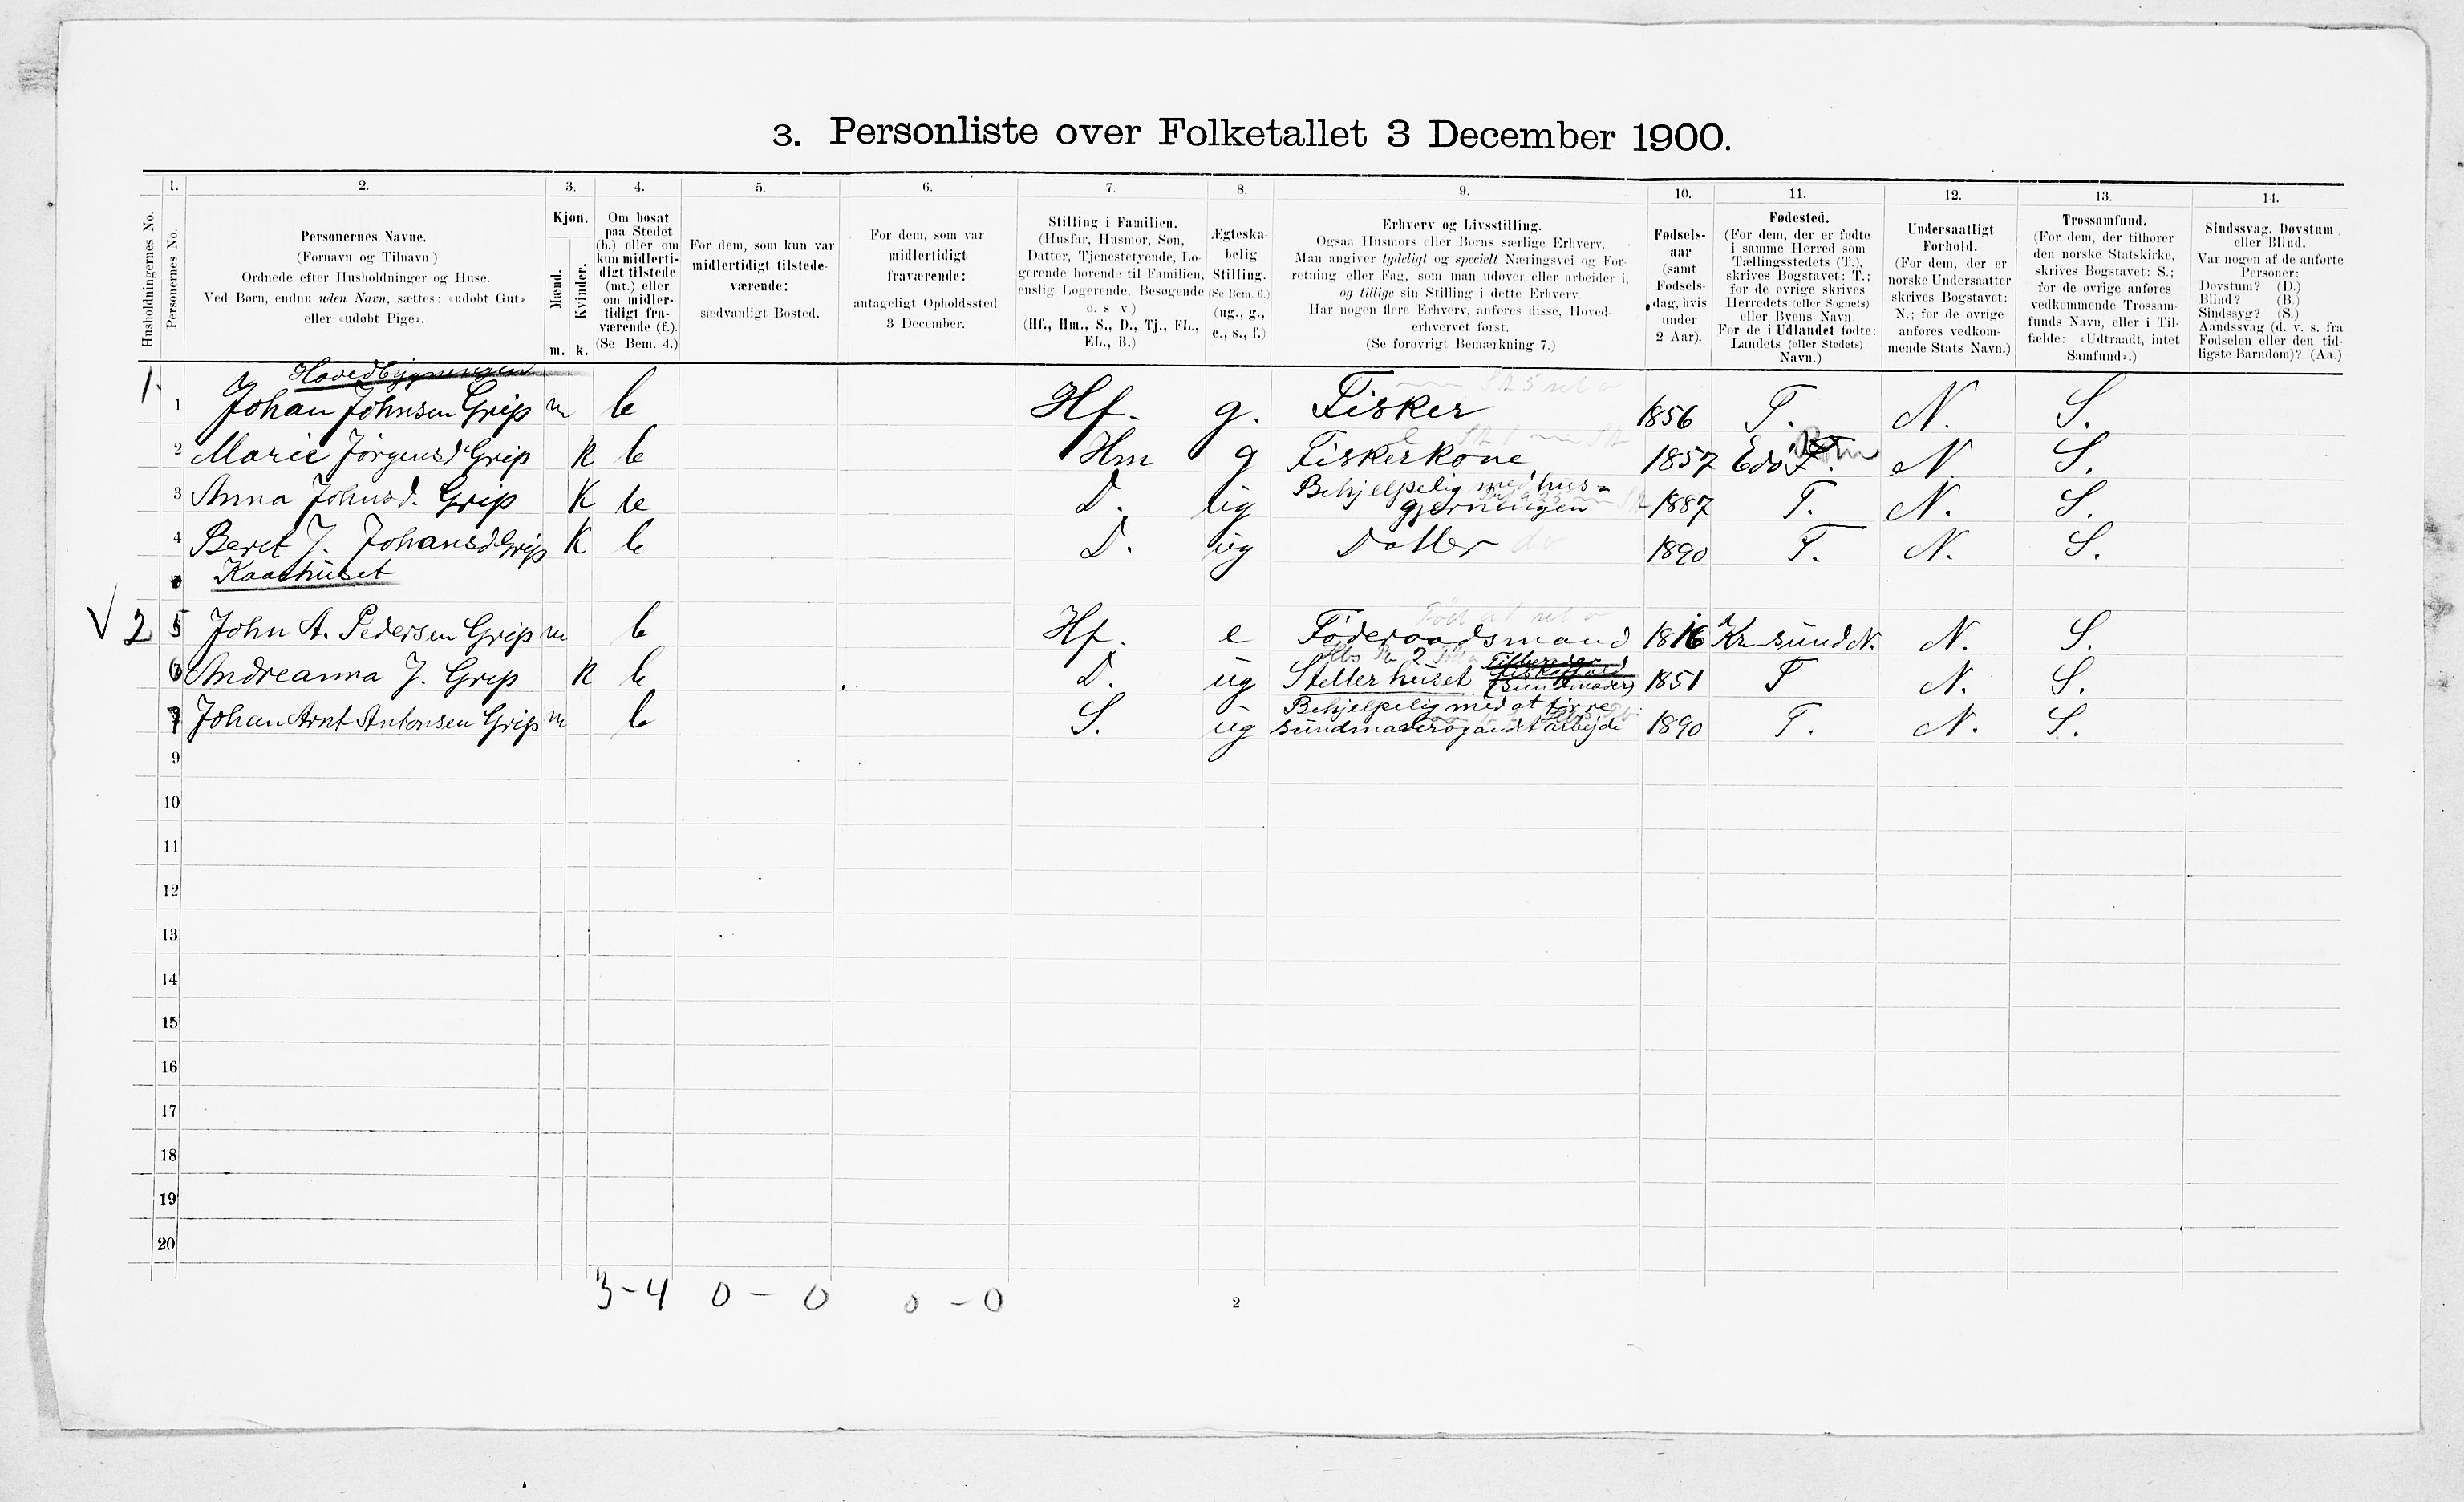 3. Personliste over Folketallet 3 December 1900.
Husholdningernes No.
1.
Personernes No.
2.
Personernes Navne.
(Fornavn og Tilnavn)
Ordnede efter Husholdninger og Huse.
Ved Børn, endnu uden Navn, sættes: «udøbt Gut»
eller «udøbt Pige».
3.
Kjøn.
Mænd.
Kvinder.
m. k.
4.
Om bosat
paa Stedet
(b.) eller om
kun midlerti-
digt tilstede
(mt.) eller
om midler-
tidigt fra-
værende (f.).
(Se Bem. 4.)
5.
For dem, som kun var
midlertidigt tilstede-
værende:
sædvanligt Bosted.
6.
For dem, som var
midlertidigt
fraværende:
antageligt Opholdssted
3 December.
7.
Stilling i Familien.
(Husfar, Husmor, Søn,
Datter, Tjenestetyende, Lo-
gerende hørende til Familien,
enslig Logerende, Besøgende
o. s v.)
(Hf., Hm., S., D., Tj., FL.,
EL., B.)
8.
Ægteska-
belig
Stilling.
(Se Bem. 6.)
(ug., g.,
e., s., f.)
9.
Erhverv og Livsstilling.
Ogsaa Husmors eller Børns særlige Erhverv.
Man angiver tydeligt og specielt Næringsvei og For-
retning eller Fag, som man udøver eller arbeider i,
og tillige sin Stilling i dette Erhverv.
Har nogen flere Erhverv, anføres disse, Hoved-
erhvervet først.
(Se forøvrigt Bemærkning 7.)
10.
Fødsels-
aar
(samt
Fødsels-
dag, hvis
under
2 Aar).
11.
Fødested.
(For dem, der er fødte
i samme Herred som
Tællingsstedets (T.),
skrives Bogstavet: T.;
for de øvrige skrives
Herredets (eller Sognets)
eller Byens Navn.
For de i Udlandet fødte:
Landets (eller Stedets)
Navn.)
12.
Undersaatligt
Forhold.
(For dem, der er
norske Undersaatter
skrives Bogstavet:
N.; for de øvrige
anføres vedkom-
mende Stats Navn.)
13.
Trossamfund.
(For dem, der tilhører
den norske Statskirke,
skrives Bogstavet: S.;
for de øvrige anføres
vedkommende Trossam-
funds Navn, eller i Til-
fælde: «Udtraadt, intet
Samfund».)
14.
Sindssvag, Døvstum
eller Blind.
Var nogen af de anførte
Personer:
Døvstum? (D.)
Blind? (B.)
Sindssyg? (S.)
Aandssvag (d. v. s. fra
Fødselen eller den tid-
ligste Barndom)? (Aa.)
Hovedbygningen
1. 1 Johan Johnsen Grip m b Hf. g. Fisker 1856 T. N. S.
2 Marie Jørgensd Grip k b Hm g Fiskerkone 1857 Edø N. S.
3 Anna Johnsd. Grip K b D. ug Behjelpelig med hus=
gjerningen 1887 T. N. S.
4 Beret J. Johansd Grip K b D. ug Datter do 1890 T. N. S.
Kaarhuset
√ 2 5 John A. Pedersen Grip m b Hf. e Føderaadsmand 1816 Kr sund N. N. S.
6 Andreanna J. Grip k b D. ug Steller huset (Sundmaver) 1851 T N. S.
7 Johan Arnt Antonsen Grip m b S. ug Behjelpelig med at tørre
sundmaver og andet arbejde 1890 T. N. S.
9
10
11
12
13
14
15
16
17
18
19
20
3-4 0-0 0-0
2